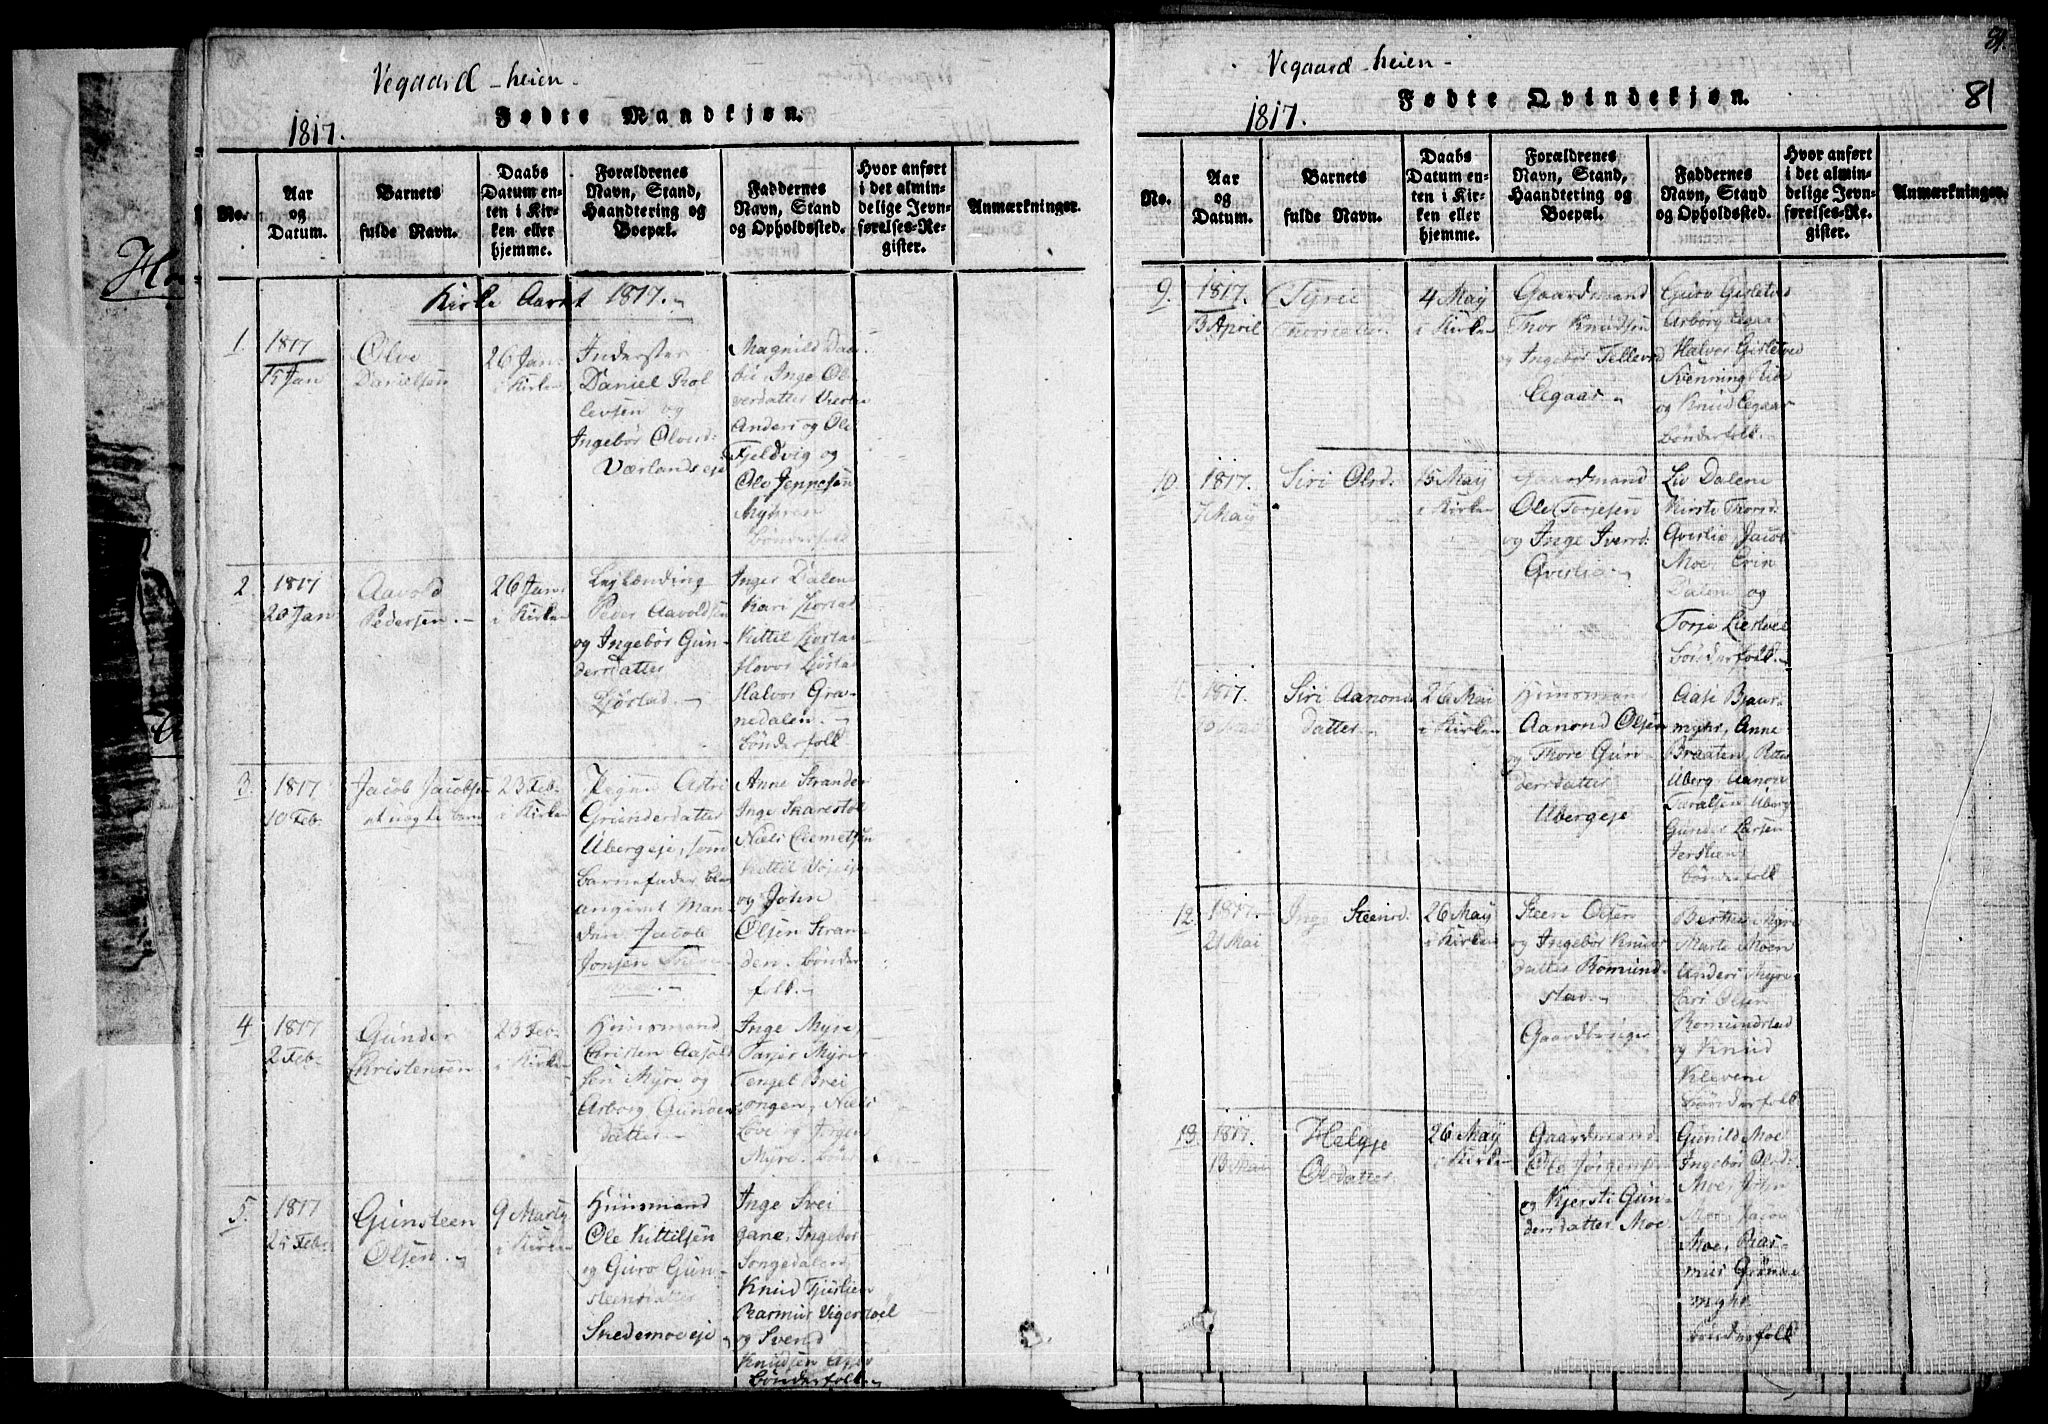 Vegaard-heien-
Fødte Mandkjøn.
1817.
No.
Aar
og
Datum.
Barnets
fulde Navn.
Daabs
Datum en-
ten i Kir-
ken eller
hjemme.
Forældrenes
Navn, Stand,
Haandtering og
Boepæl.
Faddernes
Navn, Stand
og Opholdssted.
Hvor anført
i det almin-
delige Jevn-
førelses-Re-
gister.
Anmærkninger.
Kirke Aaret 1817.-
1.
1817
15 Jan
Olve
Danielsen
26 Jan:
i Kirken
Inderster
Daniel Rol
levsen og
Ingebor Olverd:
Værlandseje
Magnild
Inge Ol
verdatter
Anders og Ole
Fjeldvig og
Ole Jeppesen
Myhren
bønderfolk
2.
1817
20 Jan
Aavold
Pedersen.-
26 Jan:
i Kirken
Lejlænding
Peder Aavoldsen
og Ingebør Gun-
dersdatter
Ljøstad.-
Inger Dalene
Kari Ljøstad
Kittil Ljøstad
Hovor Ljøstad
Halvor Gra-
nedalen.-
bønderfolk
3
1817
10 Feb.
Jacob Jacobsen
et uægte barn
23 Feb.
i Kirken
Pigen Astri
Gundersdatter
Ubergeje, som
barnefader blev
angivet Man-
den Jacob
Jonsen
Anne Stranden
Inge Skarestøl
Niels Clemetsen
Kittil
og John
Olsen Stran-
den. bønder
folk.-
4
1817
2 Feb.
Gunder
Christensen
23 Feb.
i Kirken
Huusmand
Christen
Myre og
Aarborg Gunders
datter.-
Inge Myre,
Tarjer Myre
Tengel Brei
songen, Niels
Løve og Jørgen
Myre. bønd
5.
1817
25 Feb
Gunsteen
Olsen.-
9 Marty
i Kirken
Huusmand
Ole Kittilsen
og Guro Gun-
steensdatter
Skedemoeeje
Inge Svei
gane, Ingebor
Songedalen,
Knud Tjuslien
Rasmus Vigerstoel
og Svend
Knudsen
Bønderfolk.-
Vegaard-heien-
81
Fødte Qvindekjøn.
1817.
No.
Aar
og
Datum.
Barnets
fulde Navn.
Daabs
Datum en-
ten i Kir-
ken eller
hjemme.
Forældrenes
Navn, Stand,
Haandtering og
Boepæl.
Faddernes
Navn, Stand
og Opholdssted.
Hvor anført
i det almin-
delige Jevn-
førelses-Re-
gister.
Anmærkninger.
9.
1817.
13 April
Tyrie
Thorsdatter
4 May
i Kirken
Gaardmand
Thor Knudsen
og Ingebør Tellevsd
Egaas-
Guro Gisletvd
Arborg Egaas
Halvor Gisletved
Svenning Lide
og Knud Egaas
bønderfolk.-
10
1817.
7 May
Siri Olsd.
15 May
i Kirken
Gaardmand
Ole Torjesen
og Inge Iversd:
Qvistie-
Liv Dalene
Kirsti Thorsd:
Qvistie, Jacob
Moe, Erin
Dalene og
Torje Liestvel
bønderfolk.-
11.
1817.
10 Mai
Siri Aanons
datter.-
26 Mai
i Kirken
Huusmand
Aanond Olsen
og Thore Gun-
dersdatter
Ubergeje
Aase Bjaur-
myhr, Anne
Braaten, Petter
Uberg, Aanon
Taralsen Uberg
Gunder Larsen
bønderfolk
12.
1817.
21 Mai
Inge Steensd:
26 May
i Kirken
Steen Olsen
og Ingebør Knuds
datter Romund-
stad.-
Gaardbruger
Berthe Myre
Marte Moen
Anders Myre
Lars Olsen
Romundstad
og Knud
Klevene
bønderfolk
13.
1817.
13 Mai
Helgje
Olsdatter
26 May
i Kirken
Gaardmand
Ole Jørgensen
og Kjersti Gun-
dersdatter Moe
Gunild Moe
Ingebør Olsd:
Moe, Jøgn
Moe, Jacob
Moe, Ras-
mus Grønne
myhr
bønderfolk